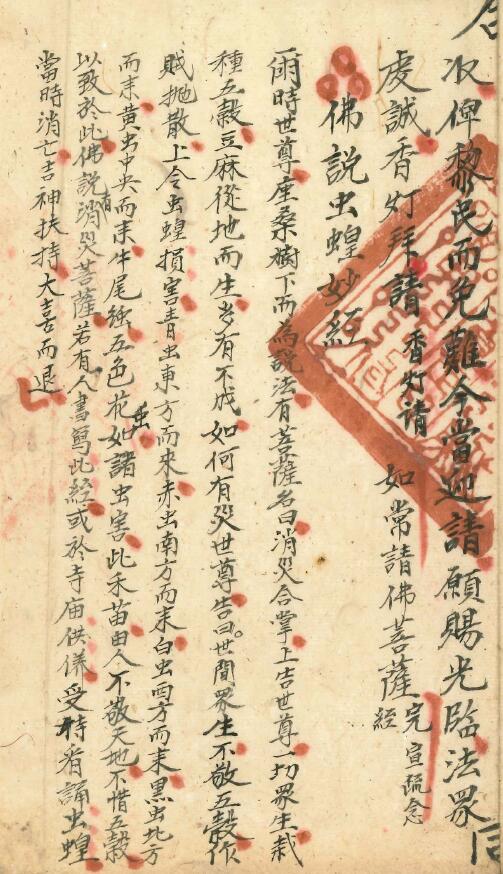 收俾黎民而免難今當迎請願賜光臨法眾同
虔誠香灯拜請 香灯請 如常請佛菩薩完宣疏念經
佛説虫蝗妙經
爾時世尊座桑樹下而為説法有菩薩名曰消災合掌上告世尊一切眾生栽
種五穀豆麻從地而生多有不成如何有災世尊告曰世間眾生不敬五穀作
賊拋散上令虫蝗損害青虫東方而來赤虫南方而来白虫西方而来黑虫北方
而来黄虫中央而来牛尾 五色花虫如諸虫害此禾苗由人不敬天地不惜五穀
以致於此佛説消災菩薩若有人書寫此經或於寺庙供養受持者誦虫蝗
當時消亡吉神扶持大喜而退